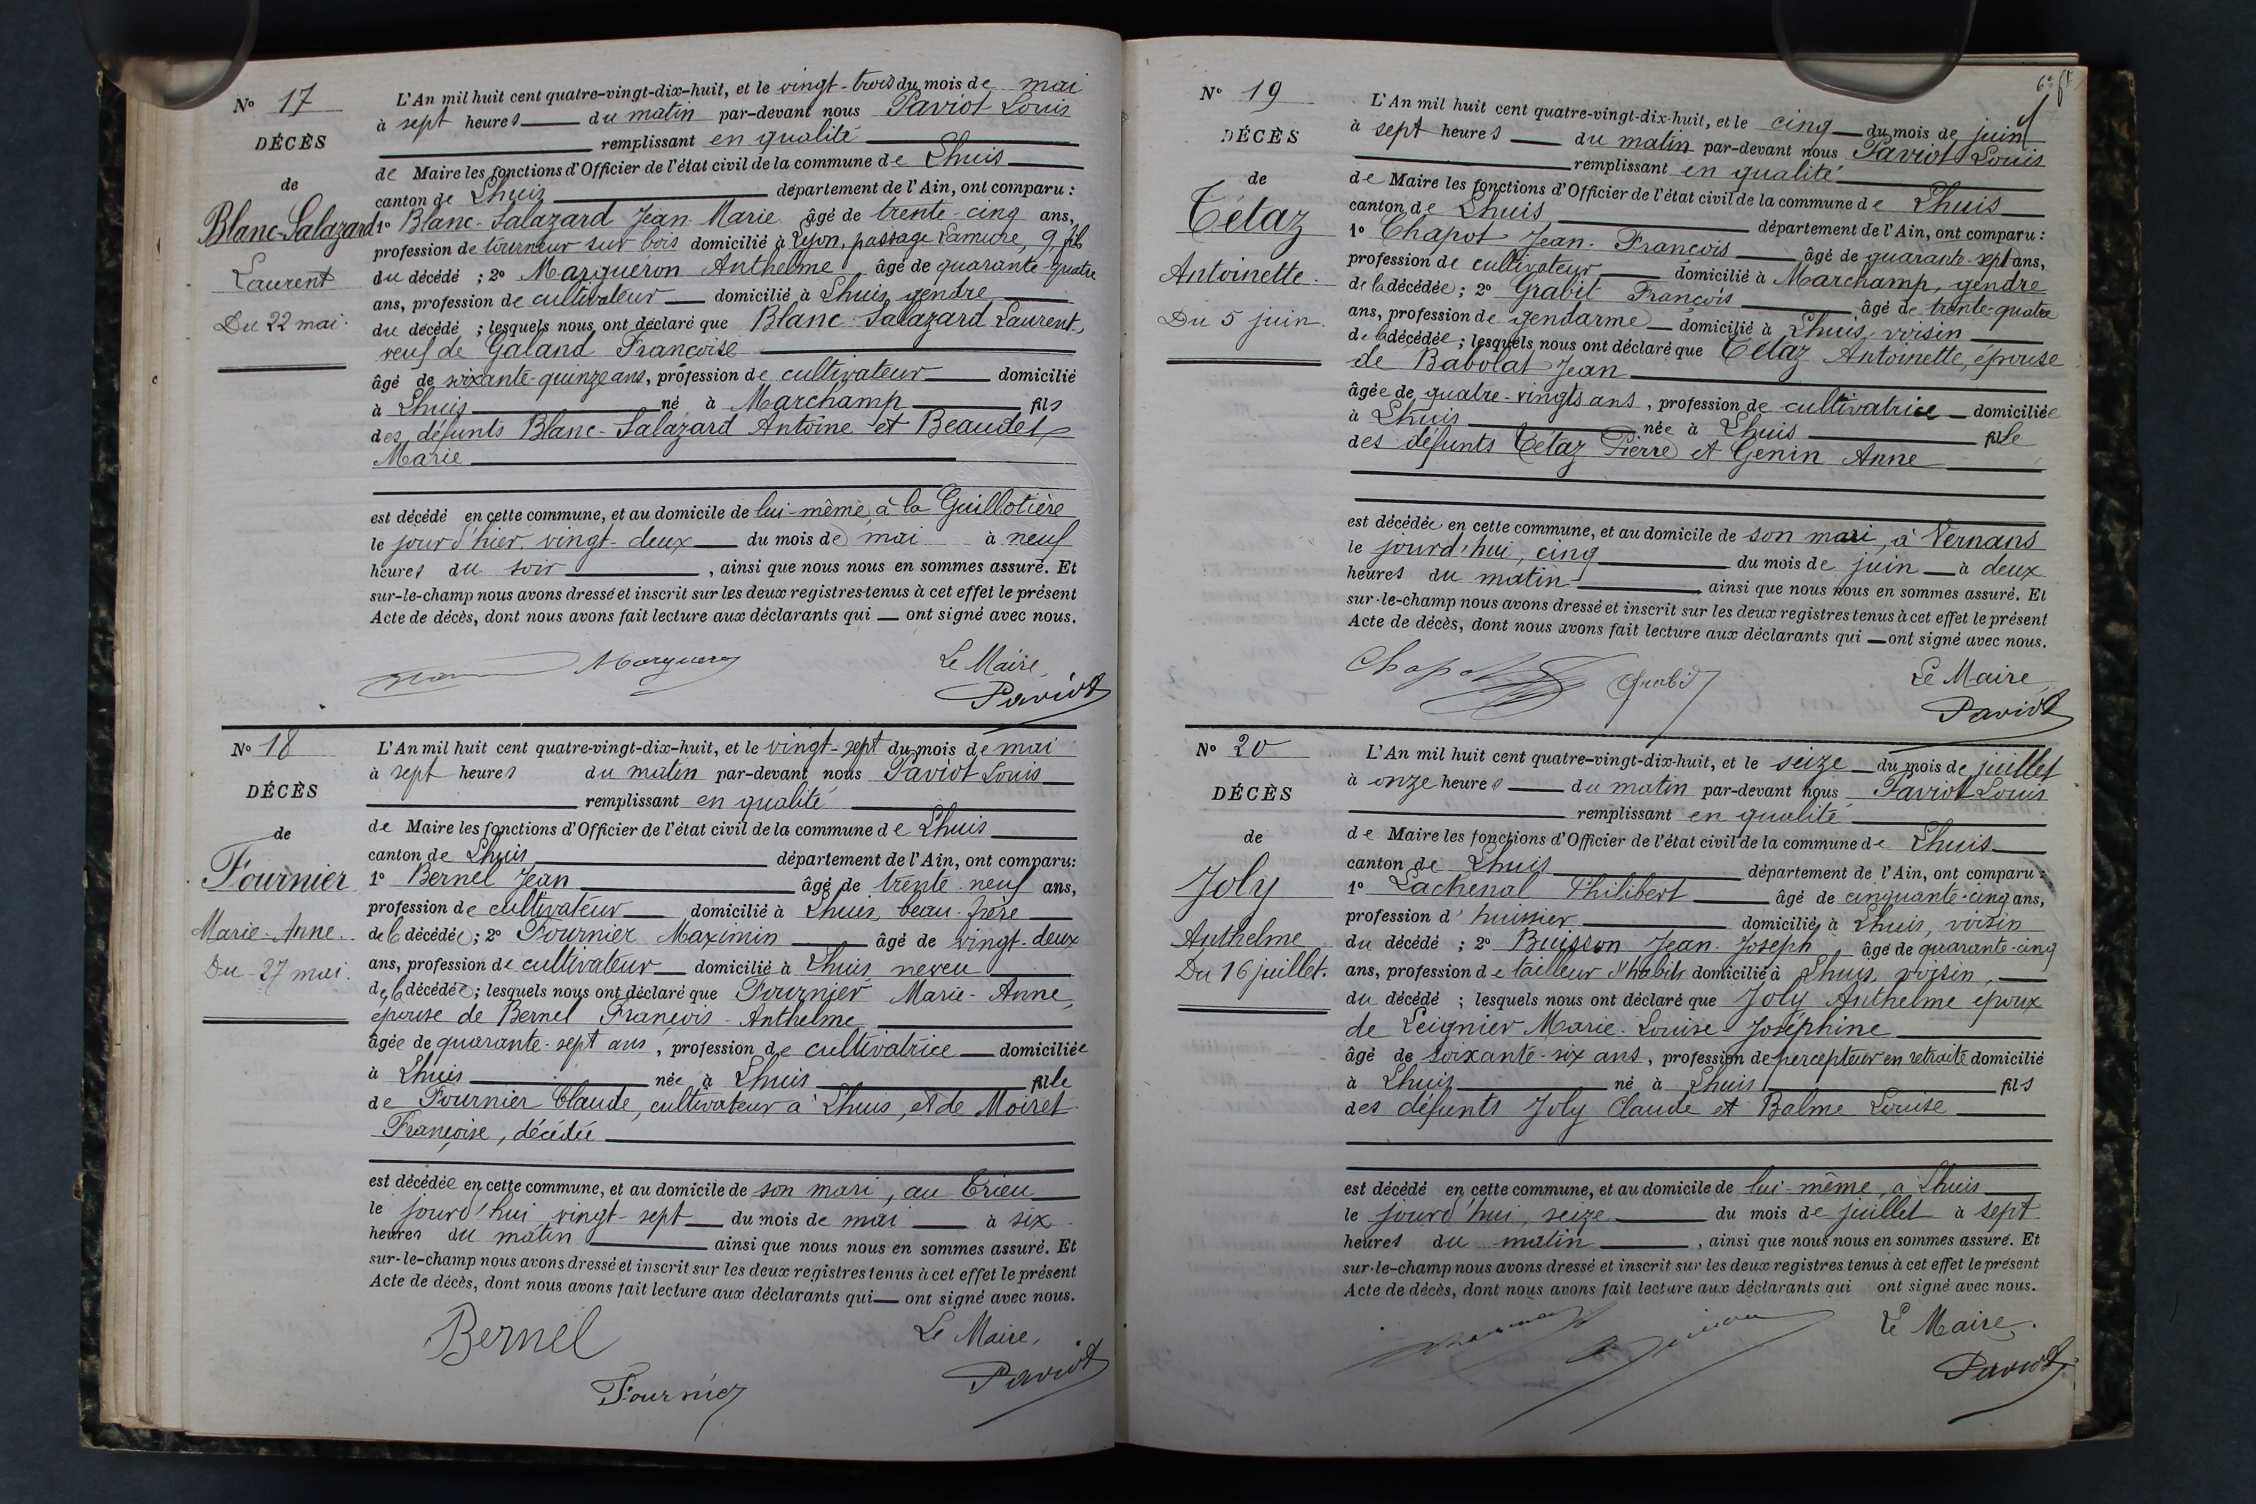 N° 17
DÉCÈS
de
Blanc-Salazard
Laurent
Du 22 mai.
L'An mil huit cent quatre-vingt-dix-huit, et le vingt-trois du mois de mai
à sept heures du matin par-devant nous Paviot Louis
remplissant en qualité
de Maire les fonctions d'Officier de l'état civil de la commune de Lhuis
canton de Lhuis département de l'Ain, ont comparu :
1° Blanc-Salazard Jean-Marie âgé de trente-cinq ans,
profession de tourneur sur bois domicilié à Lyon, passage Lamure, 9, fils
du décédé ; 2° Marguéron Anthelme âgé de quarante-quatre
ans, profession de cultivateur domicilié à Lhuis, gendre
du décédé ; lesquels nous ont déclaré que Blanc-Salazard Laurent,
veuf de Galand Françoise
âgé de soixante-quinze ans, profession de cultivateur domicilié
à Lhuis né à Marchamp fils
des défunts Blanc-Salazard Antoine et Beaudet
Marie
est décédé en cette commune, et au domicile de lui-même, à la Guillotière
le jour d'hier vingt-deux du mois de mai à neuf
heures du soir, ainsi que nous nous en sommes assuré. Et
sur-le-champ nous avons dressé et inscrit sur les deux registres tenus à cet effet le présent
Acte de décès, dont nous avons fait lecture aux déclarants qui — ont signé avec nous.
Le Maire,
Marguero
Paviot
N° 18
DÉCÈS
de
Fournier
Marie-Anne.
Du 27 mai.
L'An mil huit cent quatre-vingt-dix-huit, et le vingt-sept du mois de mai
à sept heures du matin par-devant nous Paviot Louis
remplissant en qualité
de Maire les fonctions d'Officier de l'état civil de la commune de Lhuis
canton de Lhuis département de l'Ain, ont comparu :
1° Bernel Jean âgé de trente-neuf ans,
profession de cultivateur domicilié à Lhuis, beau-frère
de la décédée ; 2° Fournier Maximin âgé de vingt-deux
ans, profession de cultivateur domicilié à Lhuis neveu
de la décédée ; lesquels nous ont déclaré que Fournier Marie-Anne,
épouse de Bernel François-Anthelme
âgée de quarante-sept ans, profession de cultivatrice domiciliée
à Lhuis née à Lhuis fille
de Fournier Claude, cultivateur à Lhuis, et de Moiret
Françoise, décédée
est décédée en cette commune, et au domicile de son mari, au Crieu
le jourd'hui vingt-sept du mois de mai à six
heures du matin ainsi que nous nous en sommes assuré. Et
sur-le-champ nous avons dressé et inscrit sur les deux registres tenus à cet effet le présent
Acte de décès, dont nous avons fait lecture aux déclarants qui — ont signé avec nous.
Bernel
Le Maire,
Fournier
Paviot
6e ft
N° 19
DÉCÈS
de
Tétaz
Antoinette.
Du 5 juin.
L'An mil huit cent quatre-vingt-dix-huit, et le cinq du mois de juin
à sept heures du matin par-devant nous Paviot Louis
remplissant en qualité
de Maire les fonctions d'Officier de l'état civil de la commune de Lhuis
canton de Lhuis département de l'Ain, ont comparu :
1° Chapot Jean-François âgé de quarante-sept ans,
profession de cultivateur domicilié à Marchamp, gendre
de la décédée ; 2° Grabit François âgé de trente-quatre
ans, profession de gendarme domicilié à Lhuis, voisin
de la décédée ; lesquels nous ont déclaré que Tétaz Antoinette, épouse
de Babolat Jean
âgée de quatre-vingts ans, profession de cultivatrice domiciliée
à Lhuis née à Lhuis fille
des défunts Tétaz Pierre et Genin Anne
est décédée en cette commune, et au domicile de son mari, à Vernans
le jourd'hui, cinq du mois de juin à deux
heures du matin ainsi que nous nous en sommes assuré. Et
sur-le-champ nous avons dressé et inscrit sur les deux registres tenus à cet effet le présent
Acte de décès, dont nous avons fait lecture aux déclarants qui — ont signé avec nous.
Chapot
Grabit
Le Maire
Paviot
N° 20
DÉCÈS
de
Joly
Anthelme
Du 16 juillet.
L'An mil huit cent quatre-vingt-dix-huit, et le seize du mois de juillet
à onze heures du matin par-devant nous Paviot Louis
remplissant en qualité
de Maire les fonctions d'Officier de l'état civil de la commune de Lhuis
canton de Lhuis département de l'Ain, ont comparu :
1° Lachenal Philibert âgé de cinquante-cinq ans,
profession d'huissier domicilié à Lhuis, voisin
du décédé ; 2° Buisson Jean-Joseph âgé de quarante-cinq
ans, profession de tailleur d'habits domicilié à Lhuis, voisin,
du décédé ; lesquels nous ont déclaré que Joly Anthelme époux
de Leignier Marie-Louise-Joséphine
âgé de soixante-six ans, profession de percepteur en retraite domicilié
à Lhuis né à Lhuis fils
des défunts Joly Claude et Balme Louise
est décédé en cette commune, et au domicile de lui-même, à Lhuis
le jourd'hui, seize du mois de juillet à sept
heures du matin, ainsi que nous nous en sommes assuré. Et
sur-le-champ nous avons dressé et inscrit sur les deux registres tenus à cet effet le présent
Acte de décès, dont nous avons fait lecture aux déclarants qui ont signé avec nous.
Le Maire,
Paviot